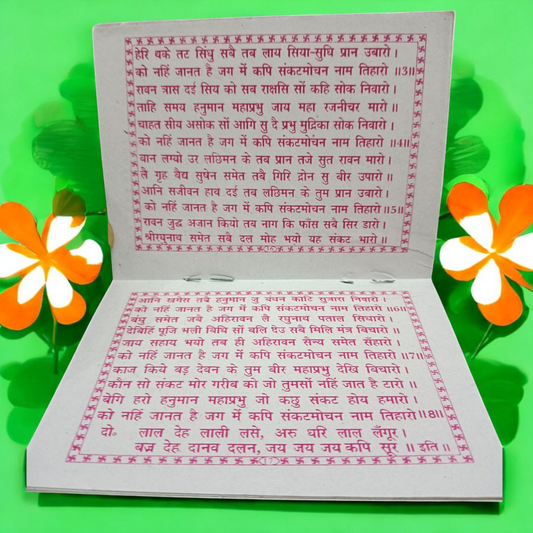 हेरि थके तट सिंधु सबै तब लाय सिया-सुधि प्रान उबारो।
को नहिं जानत है जग में कपि संकटमोचन नाम तिहारो ॥3॥
रावन त्रास दई सिय को सब राक्षसि सों कहि सोक निवारो।
ताहि समय हनुमान महाप्रभु जाय महा रजनीचर मारो॥
चाहत सीय असोक सों आगि सु दै प्रभु मुद्रिका सोक निवारो।
को नहिं जानत है जग में कपि संकटमोचन नाम तिहारो॥4॥
बान लग्यो उर लछिमन के तब प्रान तजे सुत रावन मारो।
लै गृह बैद्य सुषेन समेत तबै गिरि द्रोन सु बीर उपारो॥
आनि सजीवन हाथ दई तब लछिमन के तुम प्रान उबारो।
को नहिं जानत है जग में कपि संकटमोचन नाम तिहारो॥5॥
रावन जुद्ध अजान कियो तब नाग कि फाँस सबै सिर डारो।
श्रीरघुनाथ समेत सबै दल मोह भयो यह संकट भारो॥
आनि खगेस तबै हनुमान जु बंधन काटि सुत्रास निवारो।
को नहिं जानत है जग में कपि संकटमोचन नाम तिहारो॥6॥
बंधु समेत जबै अहिरावन लै रघुनाथ पताल सिधारो।
देबिहिं पूजि भली बिधि सों बलि देउ सबै मिलि मंत्र बिचारो॥
जाय सहाय भयो तब ही अहिरावन सैन्य समेत सँहारो।
को नहिं जानत है जग में कपि संकटमोचन नाम तिहारो॥7॥
काज किये बड़ देवन के तुम बीर महाप्रभु देखि बिचारो।
कौन सो संकट मोर गरीब को जो तुमसों नहिं जात है टारो॥
बेगि हरो हनुमान महाप्रभु जो कछु संकट होय हमारो।
को नहिं जानत है जग में कपि संकटमोचन नाम तिहारो॥8॥
दो॰ लाल देह लाली लसे, अरु धरि लाल लँगूर।
बज्र देह दानव दलन, जय जय जय कपि सूर ॥ इति॥